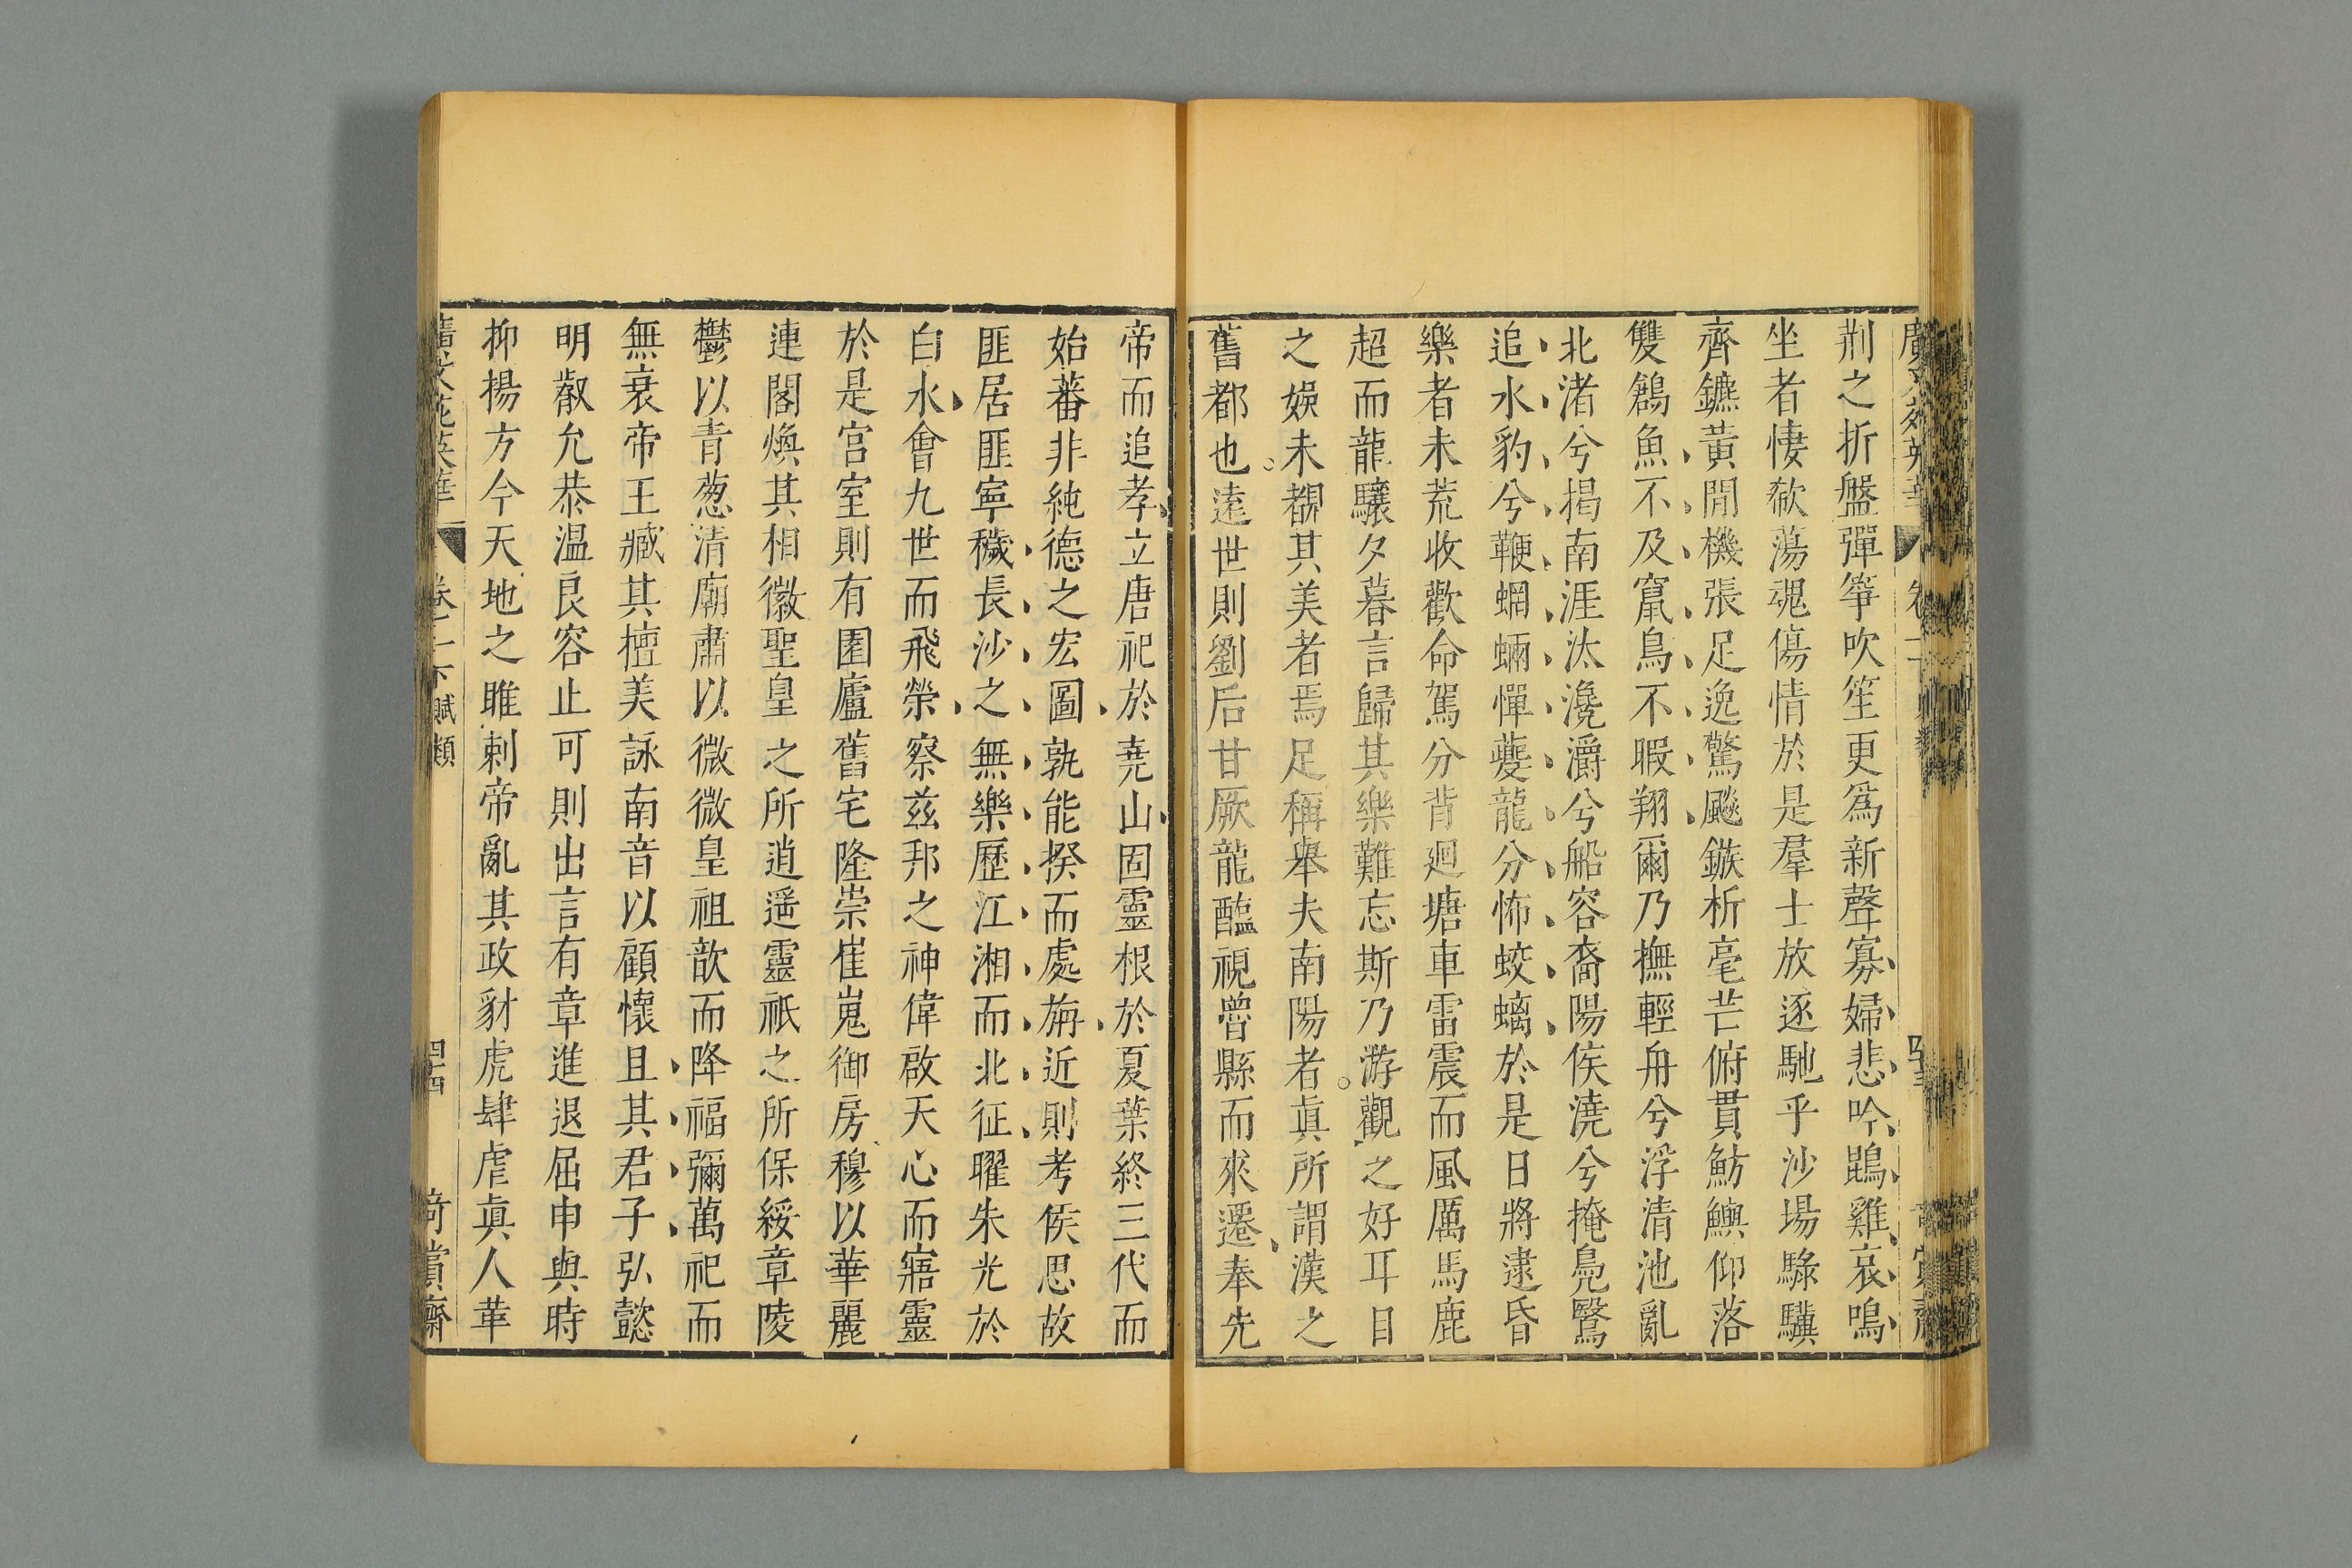 荆之折盤彈箏吹笙更爲新聲寡婦悲吟鵾雞哀鳴
坐者悽欷蕩魂傷情於是羣士放逐馳乎沙場騄驥
齊鑣黃閒機張足逸驚飈鏃析毫芒俯貫魴鱮仰落
雙鶬魚不及竄鳥不暇翔爾乃撫輕舟兮浮清池亂
北渚兮揭南涯汰瀺灂兮船容裔陽侯澆兮掩鳧鷖
追水豹兮鞭蝄蜽憚夔龍兮怖蛟螭於是日將逮昏
樂者未荒收歡命駕分背迴塘車雷震而風厲馬鹿
超而龍驤夕暮言歸其樂難忘斯乃游觀之好耳目
之娛未覩其美者焉足稱舉夫南陽者眞所謂漢之
舊都也遠世則劉后甘厥龍醢視魯縣而來遷奉先
帝而追孝立唐祀於堯山固靈根於夏葉終三代而
始蕃非純德之宏圖孰能揆而處旃近則考侯思故
匪居匪寧穢長沙之無樂歷江湘而北征曜朱光於
白水會九世而飛榮察茲邦之神偉啟天心而寤靈
於是宮室則有園廬舊宅隆崇崔嵬御房穆以華麗
連閣煥其相徽聖皇之所逍遙靈祇之所保綏章陵
鬱以青葱清廟肅以微微皇祖歆而降福彌萬祀而
無衰帝王臧其擅美詠南音以顧懷且其君子弘懿
明叡允恭溫良容止可則出言有章進退屈申與時
抑揚方今天地之睢剌帝亂其政豺虎肆虐眞人革
廣文苑英華 卷二十下 賦類 四十四 奇賞齋